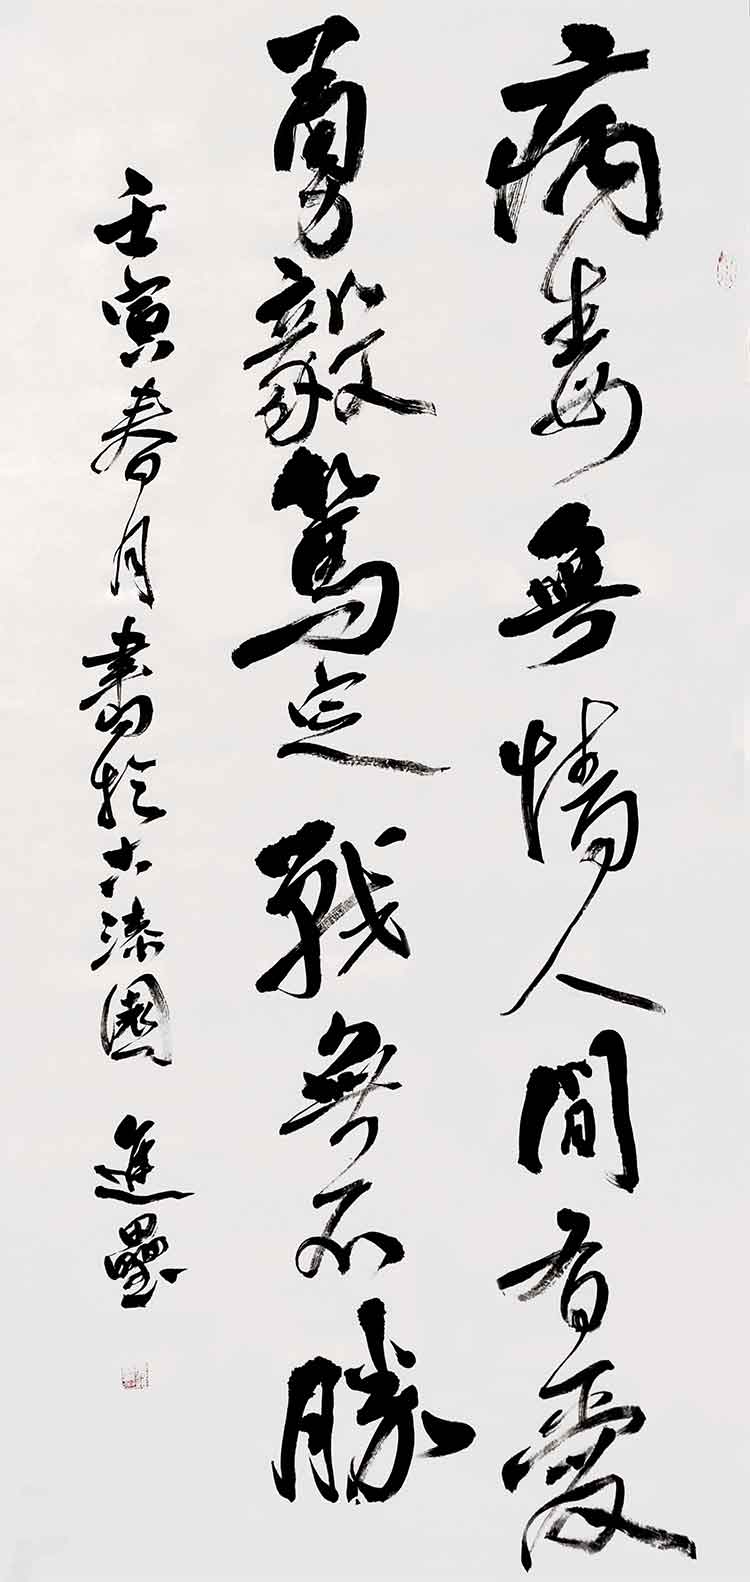 病毒無情人間有愛
勇毅篤定戰無不勝
壬寅春月書於六漆園 進壘